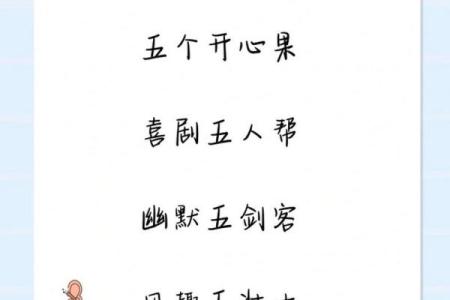 五个开心果
喜剧五人帮
幽默五剑客